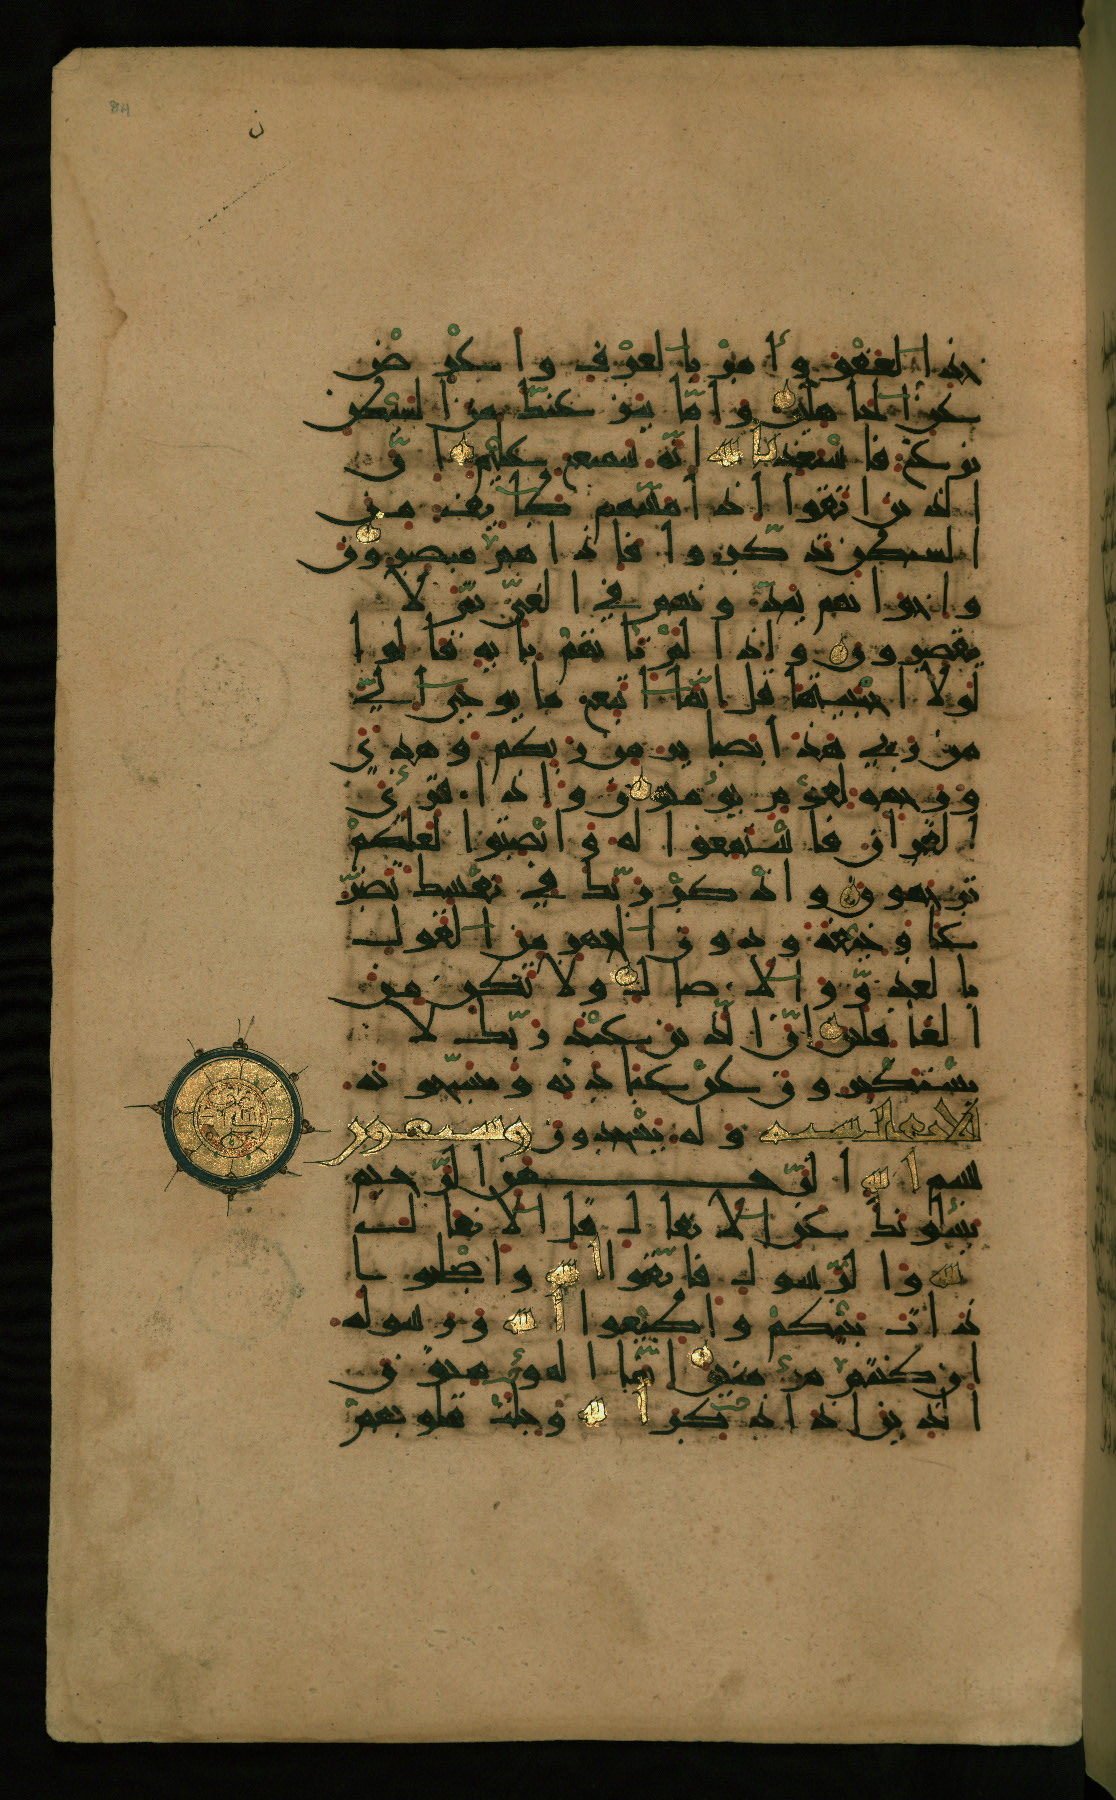 خذ العفو وأمر بالعرف واعرض
عن الجاهلين واما ينزغنك من الشيطن
نزغ فاستعذ بالله انه سميع عليم ان
الذين اتقوا اذا مسهم طائف من
الشيطن تذكروا فاذا هم مبصرون
واخوانهم يمدونهم في الغي ثم لا
يقصرون واذا لم تاتهم باية قالوا
لولا اجتبيتها قل انما اتبع ما يوحى الي
من ربي هذا بصاير من ربكم وهدى
ورحمة لقوم يؤمنون واذا قرئ
القران فاستمعوا له وانصتوا لعلكم
ترحمون واذكر ربك في نفسك تضر
عا وخيفة ودون الجهر من القول
بالغدو والاصال ولا تكن من
الغافلين ان الذين عند ربك لا
يستكبرون عن عبادته ويسبحونه
وله يسجدون وسبعون
بسم الله الرحمن الرحيم
يسلونك عن الانفال قل الانفال
لله والرسول فاتقوا الله واصلحوا
ذات بينكم واطيعوا الله ورسوله
ان كنتم مؤمنين انما المؤمنون
الذين اذا ذكر الله وجلت قلوبهم